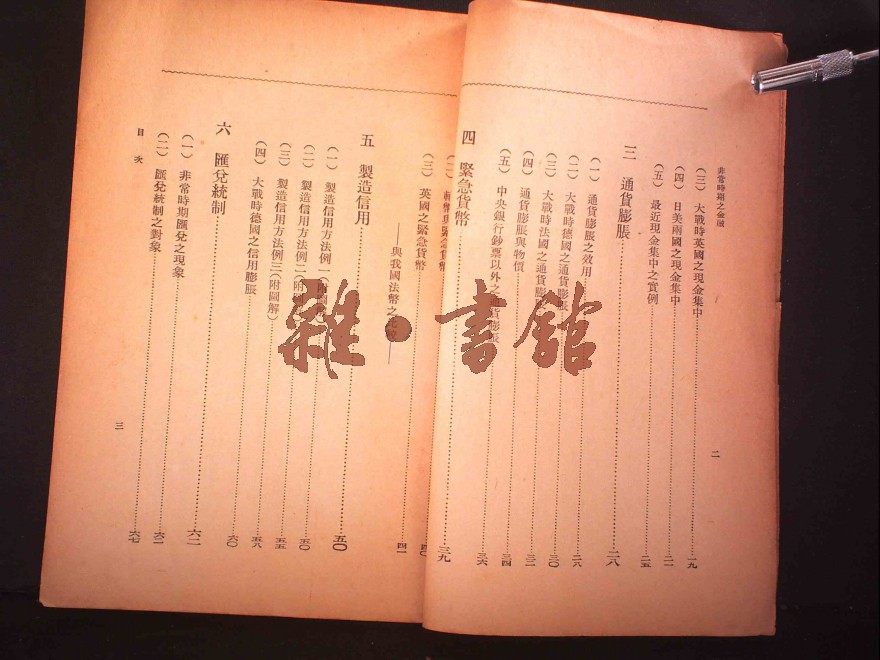 非常時期之金融
二
(三) 大戰時英國之現金集中……一九
(四) 日美兩國之現金集中……二一
(五) 最近現金集中之實例……二五
三 通貨膨脹……二八
(一) 通貨膨脹之效用……二八
(二) 大戰時德國之通貨膨脹……三〇
(三) 大戰時法國之通貨膨……三二
(四) 通貨膨脹與物價……三四
(五) 中央銀行鈔票以外之通貨膨脹……三六
四 緊急貨幣……三九
緊急貨幣……四〇
(三) 英國之緊急貨幣
——與我國法幣之比——……四一
五 製造信用……五〇
(一) 製造信用方法例一(附圖……五〇
(二) 製造信用方法例二(附圖……五五
(三) 製造信用方法例三(附圖解)……五八
(四) 大戰時德國之信用膨脹……六〇
六 匯兌統制……六二
(一) 非常時期匯兌之現象……六二
(二) 匯兌統制之對象……六七
目次
三
雜·書館